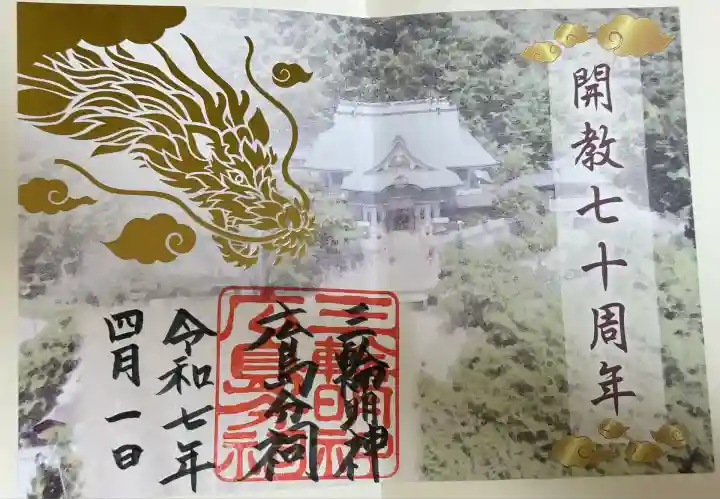 開教七十周年
三輪明神
広島分祠
令和七年
四月一日
三輪明神
広島分祠